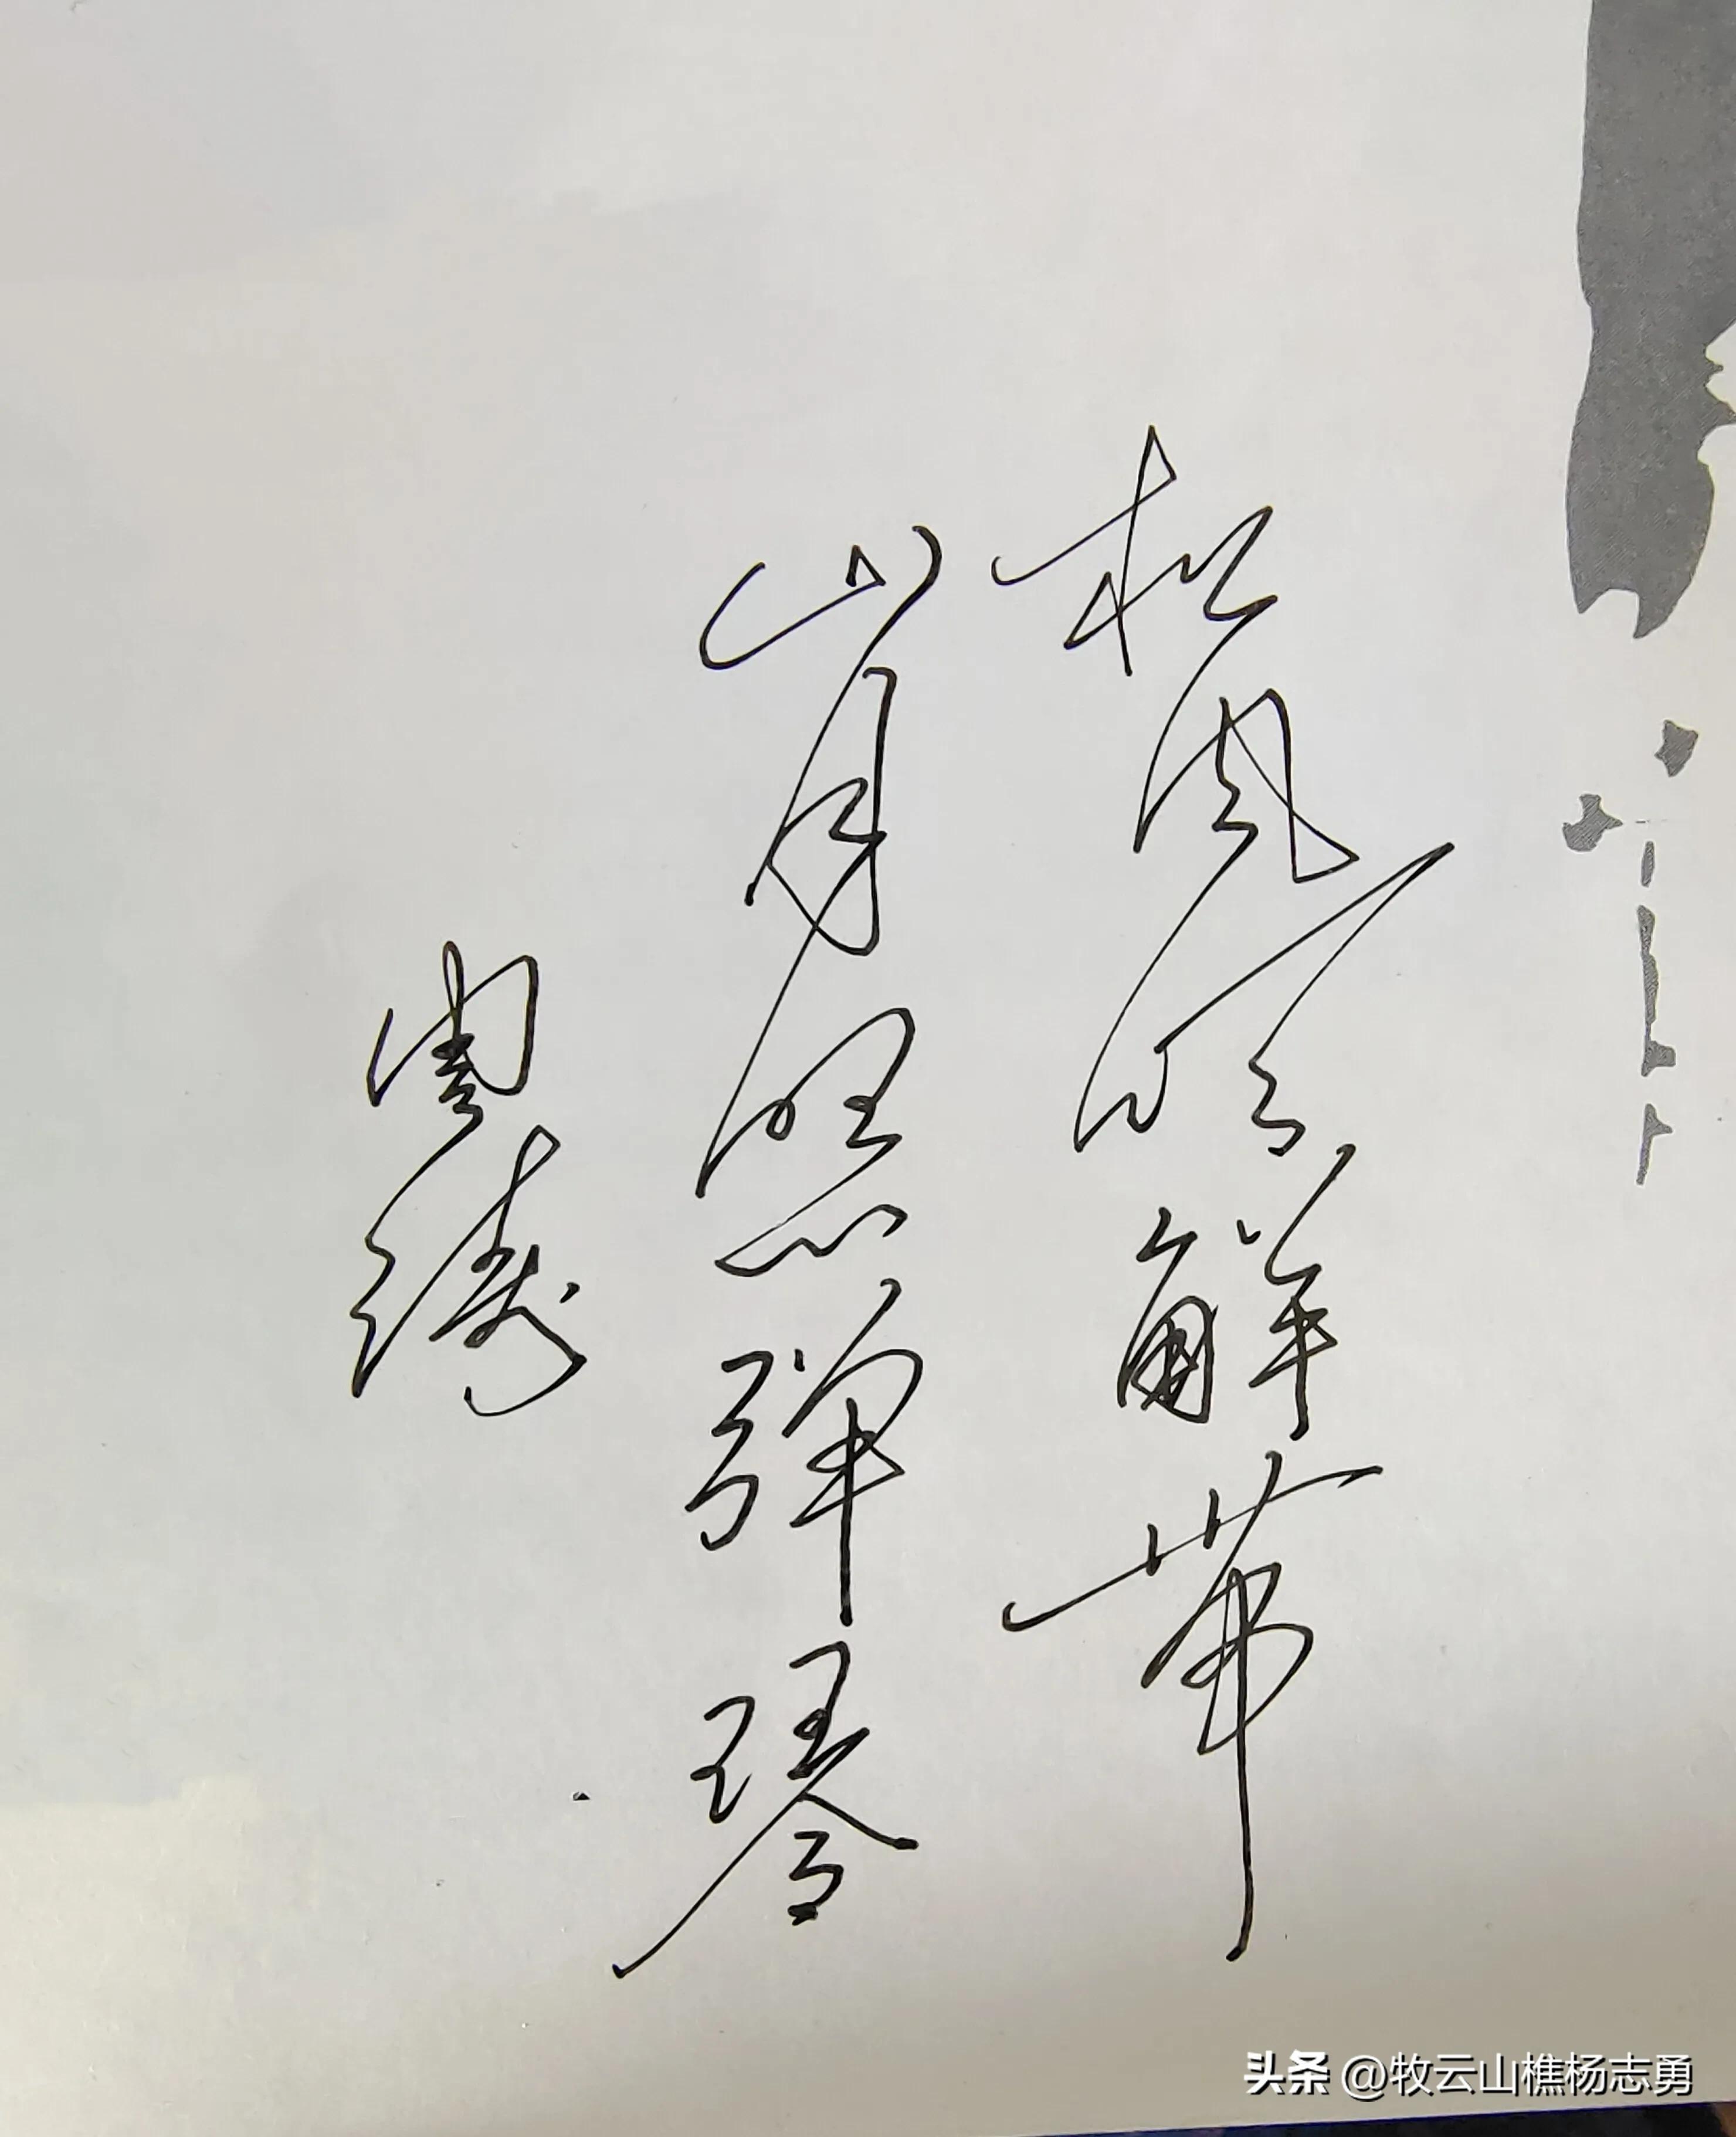 松风吹解带
山月照弹琴
周涛
头条 @牧云山樵杨志勇